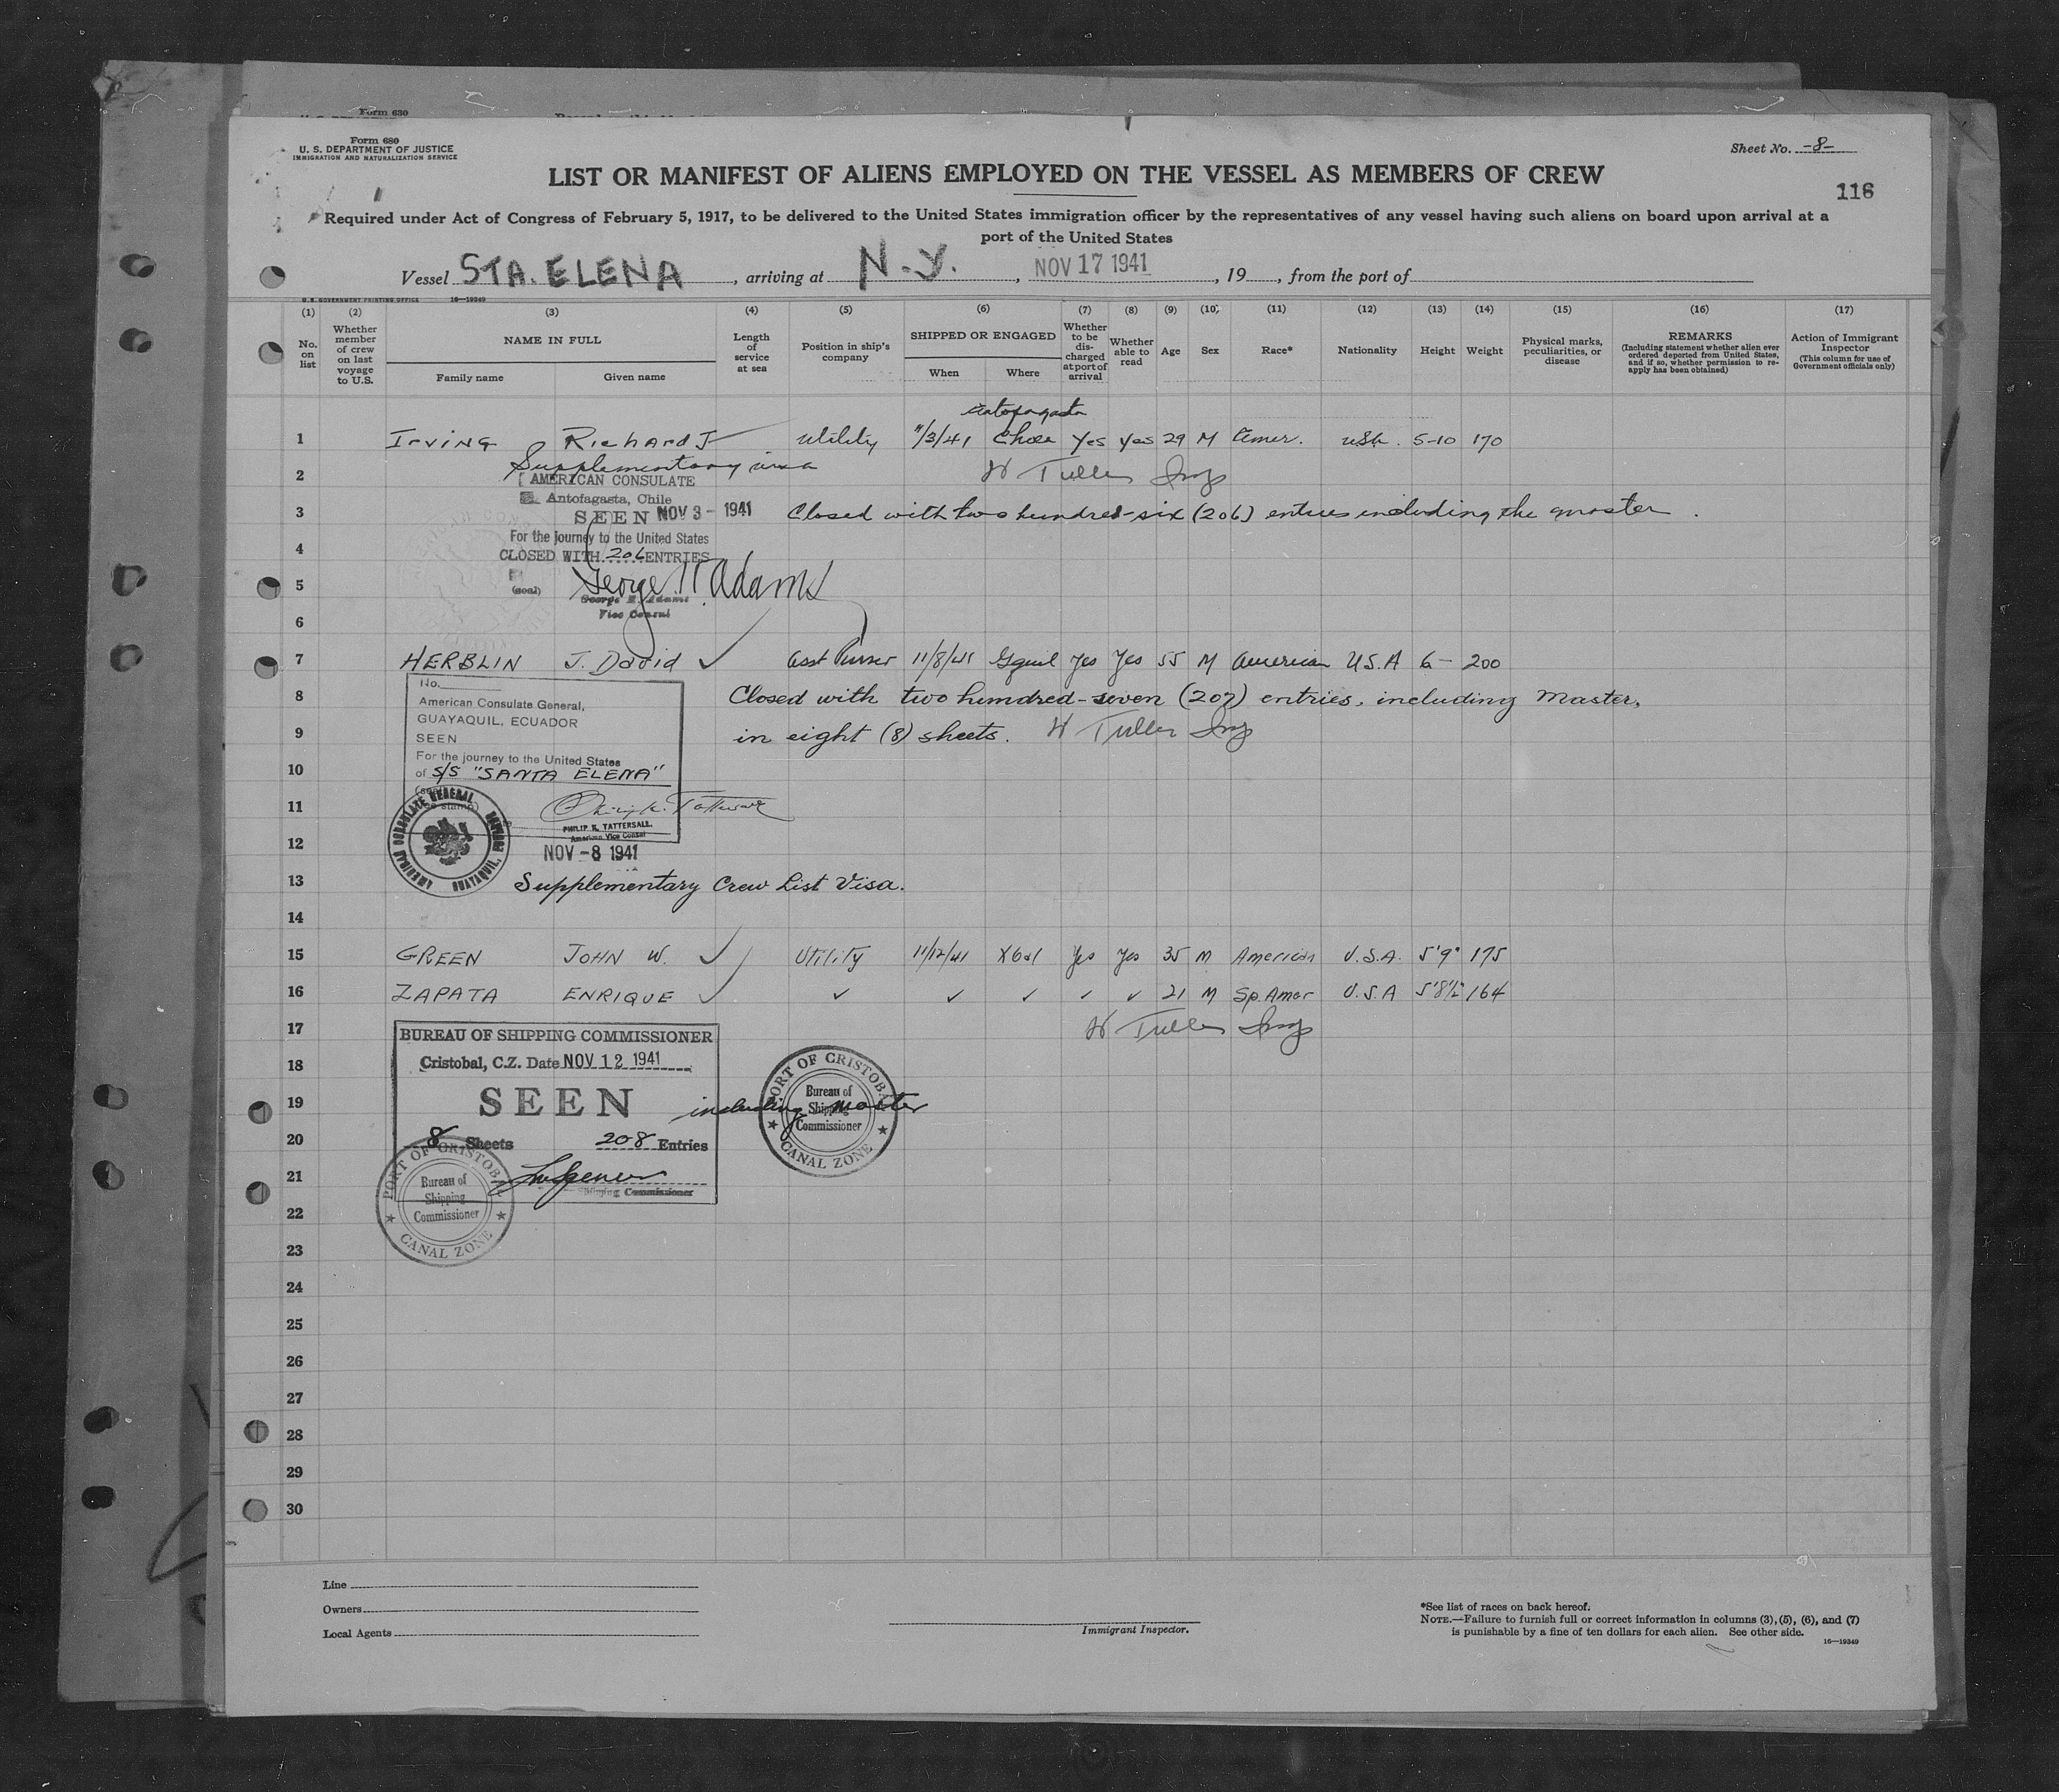 Form 630
Form 680
U. S. DEPARTMENT OF JUSTICE
IMMIGRATION AND NATURALIZATION SERVICE
Sheet No. -8-
LIST OR MANIFEST OF ALIENS EMPLOYED ON THE VESSEL AS MEMBERS OF CREW
116
Required under Act of Congress of February 5, 1917, to be delivered to the United States immigration officer by the representatives of any vessel having such aliens on board upon arrival at a
port of the United States
Vessel STA. ELENA, arriving at N.Y., NOV 17 1941, 19, from the port of
U. S. GOVERNMENT PRINTING OFFICE 16—19349
(1) (2) (3) (4) (5) (6) (7) (8) (9) (10) (11) (12) (13) (14) (15) (16) (17)
No. on list
Whether member of crew on last voyage to U.S.
NAME IN FULL
Family name Given name
Length of service at sea
Position in ship's company
SHIPPED OR ENGAGED
When Where
Whether to be discharged at port of arrival
Whether able to read
Age
Sex
Race*
Nationality
Height
Weight
Physical marks, peculiarities, or disease
REMARKS
(Including statement whether alien ever ordered deported from United States, and if so, whether permission to reapply has been obtained)
Action of Immigrant Inspector
(This column for use of Government officials only)
Antofagasta
1 Irving Richard J Utility 11/3/41 Chile Yes Yes 29 M Amer. USA. 5-10 170
Supplementary visa
2 AMERICAN CONSULATE W Tuller Insp
Antofagasta, Chile
3 SEEN NOV 3 - 1941 Closed with two hundred-six (206) entries including the master.
For the journey to the United States
4 CLOSED WITH 206 ENTRIES
5 (seal) George H Adams
George H. Adams
Vice Consul
6
7 HERBLIN J. David ✓ Asst Purser 11/8/41 Gquil Yes Yes 55 M American U.S.A 6- 200
No.
8 American Consulate General, Closed with two hundred-seven (207) entries, including Master,
GUAYAQUIL, ECUADOR
9 SEEN in eight (8) sheets. W Tuller Insp
For the journey to the United States
10 of S/S "SANTA ELENA"
11
AMERICAN CONSULATE GENERAL GUAYAQUIL, ECUADOR
PHILIP K. TATTERSALL.
American Vice Consul
12 NOV -8 1941
13 Supplementary Crew List Visa.
14
15 GREEN JOHN W. ✓ Utility 11/12/41 Xbal Yes Yes 35 M American U.S.A. 5'9" 175
16 ZAPATA ENRIQUE ✓ ✓ ✓ ✓ ✓ ✓ 21 M Sp. Amer U.S.A 5'8½" 164
17 W Tuller Insp
BUREAU OF SHIPPING COMMISSIONER
18 Cristobal, C.Z. Date NOV 12 1941
19 SEEN including master
PORT OF CRISTOBAL
Bureau of
Shipping
Commissioner
CANAL ZONE
20 8 Sheets 208 Entries
21
Shipping Commissioner
PORT OF CRISTOBAL
Bureau of
Shipping
Commissioner
CANAL ZONE
22
23
24
25
26
27
28
29
30
Line
Owners
Local Agents
Immigrant Inspector.
*See list of races on back hereof.
NOTE.—Failure to furnish full or correct information in columns (3), (5), (6), and (7)
is punishable by a fine of ten dollars for each alien. See other side.
16—19349